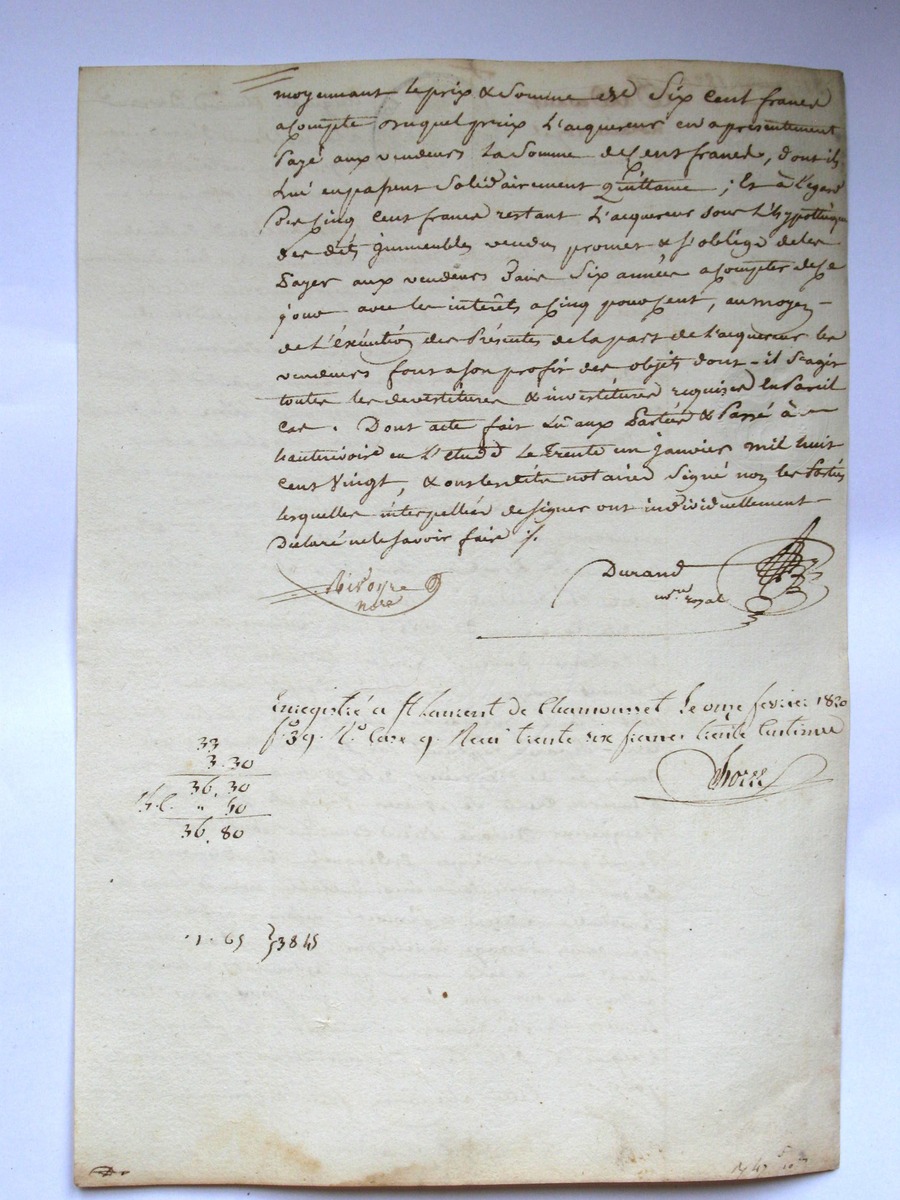 moyennant le prix & Somme de Six Cent francs
acompte duquel prix L'acquereur en a présentement
Payé aux vendeurs La Somme de Cent francs, dont ils
Lui en passent Solidairement Quittance ; Et à L'egard
Des Cinq Cent francs restant L'acquereur sous L'hypotheque
des dits immeubles vendus promet & s'oblige de les
Payer aux vendeurs Dans Six années a compter de ce
jour avec les intérêts a Cinq pour Cent, au moyen -
de L'éxécution des Présentes de la part de L'acquereur les
vendeurs font a son profit des objets dont-il S'agit
toutes les devestitures & investitures requises En Pareil
Cas. Dont acte fait Lû aux Parties & Passé à
hauterivoire en L'etude Le Trente un janvier mil huit
Cent Vingt, & ont les dits notaires Signé non les Parties
lesquelles interpellées de signer ont individuellement
Déclaré ne le Savoir faire ./.
nore
Durand
nre royal
Enregistré a St Laurent de Chamousset Le onze fevrier 1820
fo 39. Vo Case 9. Recu trente six francs trente Centimes
33
3.30
36.30
" 50
36.80
.1.65 } 38 45